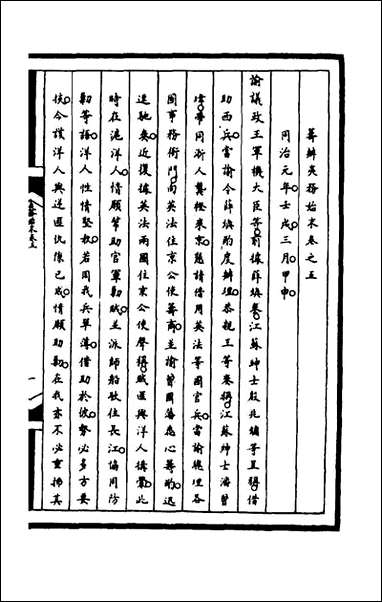 籌辦夷務始末卷之五
同治元年壬戌三月甲申
諭議政王軍機大臣等前據薛煥奏江蘇紳士殷兆鏞等呈稱借
助西兵當諭令薛煥酌度辦理恭親王等奏稱江蘇紳士潘曾
瑋帶同浙人龔橙來京懇請借用英法等國官兵當諭總理各
國事務衙門向英法住京公使籌商並諭曾國藩悉心籌酌迅
速馳奏近復據英法兩國住京公使聲稱賊匪與洋人構釁此
時在滬洋人情願幫助官軍勦賊並派師船駛往長江協用防
勦等語洋人性情堅執若因我兵單薄借助於彼勢必多方要
挾今該洋人與逆匪仇隙已成情願助勦在我亦不必重拂其